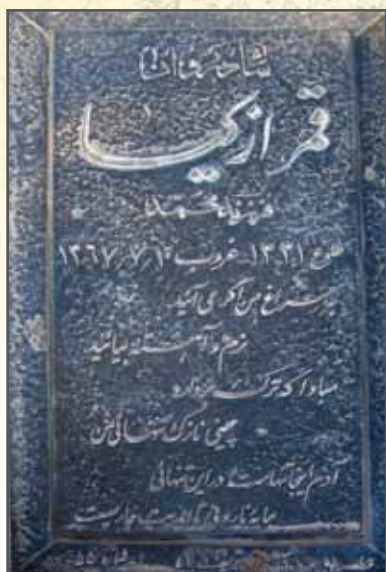 شادروان
قمر ازکیا
فرزند محمد
طلوع ۱۳۳۱ غروب ۱۳۶۷/۷/۱۰
به سراغ من اگر می آئید
نرم و آهسته بیائید
مبادا که ترک بردارد
چینی نازک تنهائی من
آدم اینجا تنهاست و در این تنهائی
سایه نارونی تا ابدیت جاریست